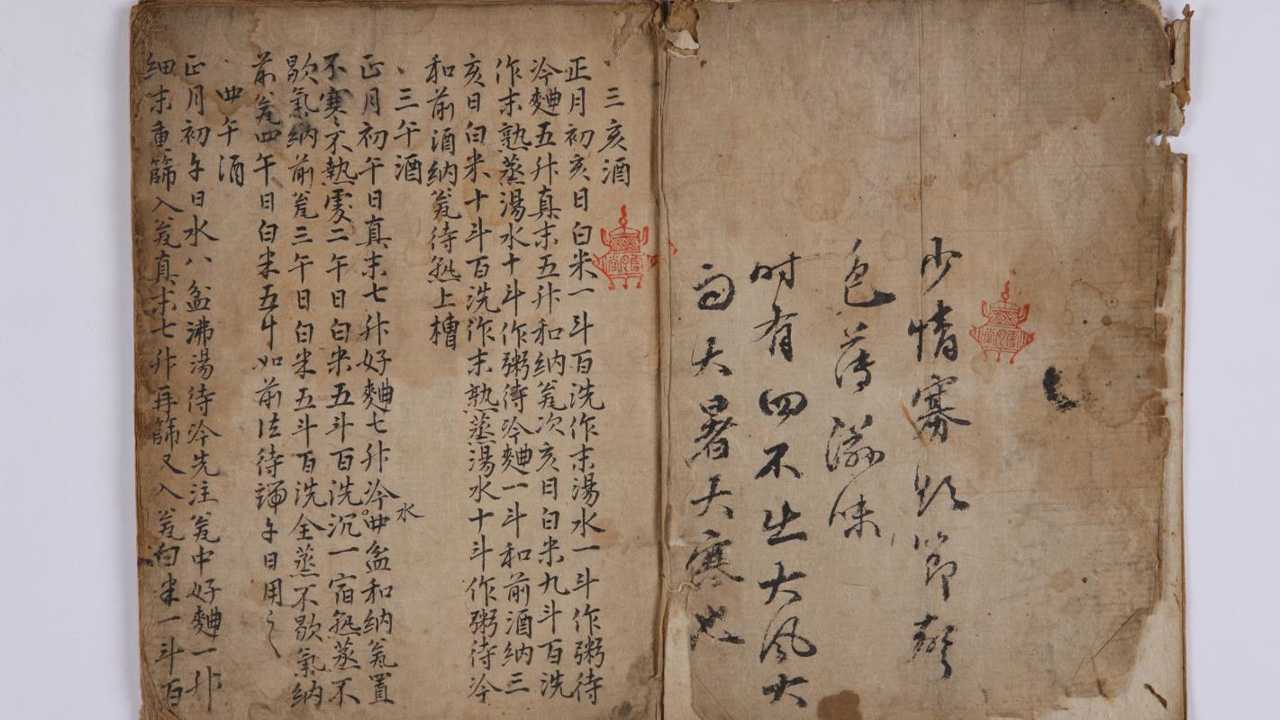 少情寡慾節聲
色薄滋味
时有四不出大风大
雨大暑大寒也
三亥酒
正月初亥日白米一斗百洗作末湯水一斗作粥待
冷麯五升真末五升和納瓮次亥日白米九斗百洗
作末熟蒸湯水十斗作粥待冷麯一斗和前酒納三
亥日白米十斗百洗作末熟蒸湯水十斗作粥待冷
和前酒納瓮待熟上槽
三午酒
正月初午日真末七升好麯七升冷水四盆和納瓮置
不寒不熱處二午日白米五斗百洗沉一宿熟蒸不
歇氣納前瓮三午日白米五斗百洗全蒸不歇氣納
前瓮四午日白米五斗如前法待端午日用之
四午酒
正月初午日水八盆沸湯待冷先注瓮中好麯一升
細末重篩入瓮真末七升再篩又入瓮白米一斗百